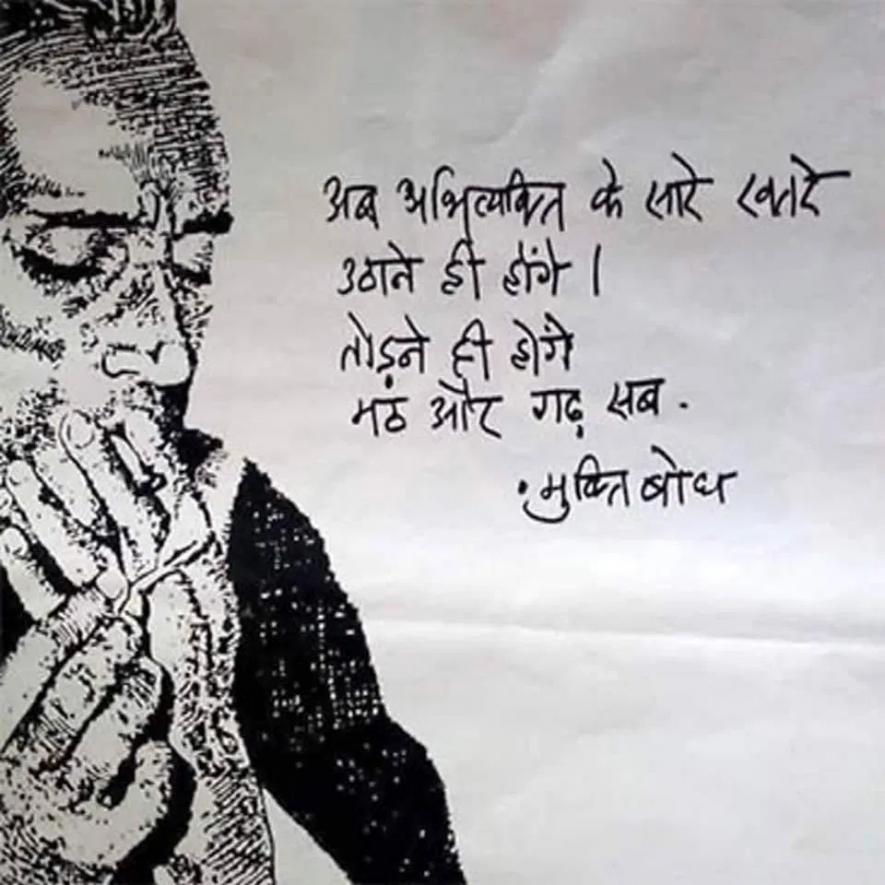 अब अभिव्यक्ति के सारे खतरे
उठाने ही होंगे।
तोड़ने ही होगें
मठ और गढ़ सब.
मुक्तिबोध